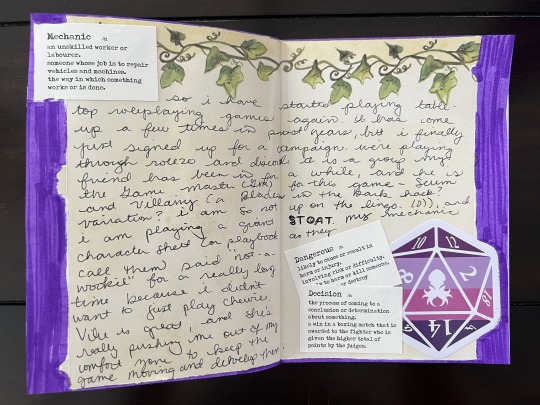 Mechanic n
an unskilled worker or
labourer.
someone whose job is to repair
vehicles and machines.
the way in which something
works or is done.
so i have started playing table-
top roleplaying games again. it has come
up a few times in past years, but i finally
just signed up for a campaign. we're playing
through roll20 and discord. it is a group my
friend has been in for a while, and he is
the Game Master (GM) for this game - Scum
and Villainy (a Blades in the Dark hack?
variation? i am so not up on the lingo. lol)), and
i am playing a giant STOAT. my mechanic
character sheet (or playbook as they
call them) said "not-a-
wookie" for a really long
time because i didn't
want to just play chewie.
Vila is great, and she's
really pushing me out of my
comfort zone to keep the
game moving and develop them
Dangerous a
likely to cause or result in
harm or injury.
involving risk or difficulty.
to harm or kill someone,
or destroy
Decision n
the process of coming to a
conclusion or determination
about something.
a win in a boxing match that is
awarded to the fighter who is
given the higher total of
points by the judges.
10
12
8
2
16
14